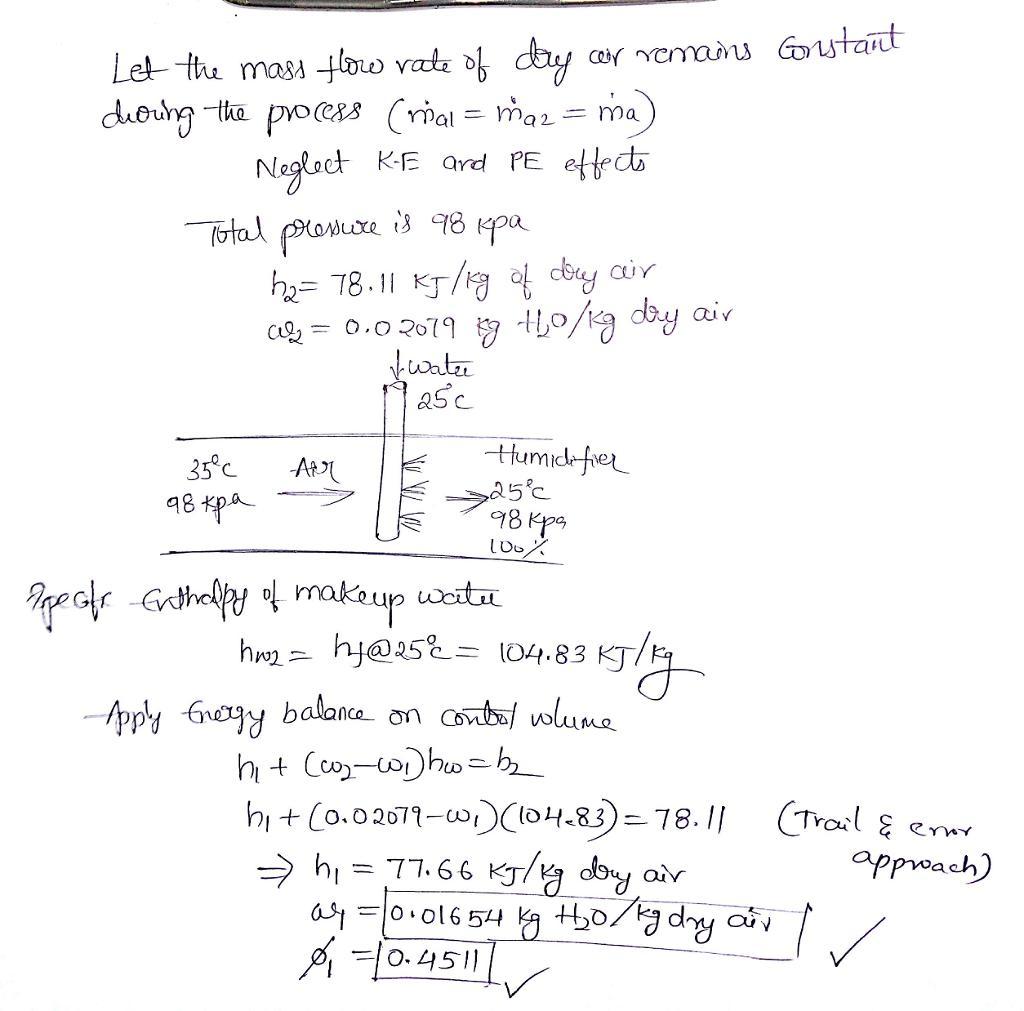 Let the mass flow rate of dry air remains Constant
during the process (ṁa1 = ṁa2 = ṁa)
Neglect K.E and PE effects
Total pressure is 98 kpa
h2 = 78.11 KJ/kg of dry air
ω2 = 0.02079 kg H2O/kg dry air
↓ water
25°c
35°c Air
98 kpa
Humidifier
25°c
98 Kpa
100%
Specific Enthalpy of makeup water
hw2 = hf@25°c = 104.83 KJ/kg
Apply Energy balance on control volume
h1 + (ω2-ω1)hw = h2
h1 + (0.02079-ω1)(104.83) = 78.11 (Trail & error
approach)
⇒ h1 = 77.66 KJ/kg dry air
ω1 = 0.01654 kg H2O/kg dry air ✓
ϕ1 = 0.4511 ✓